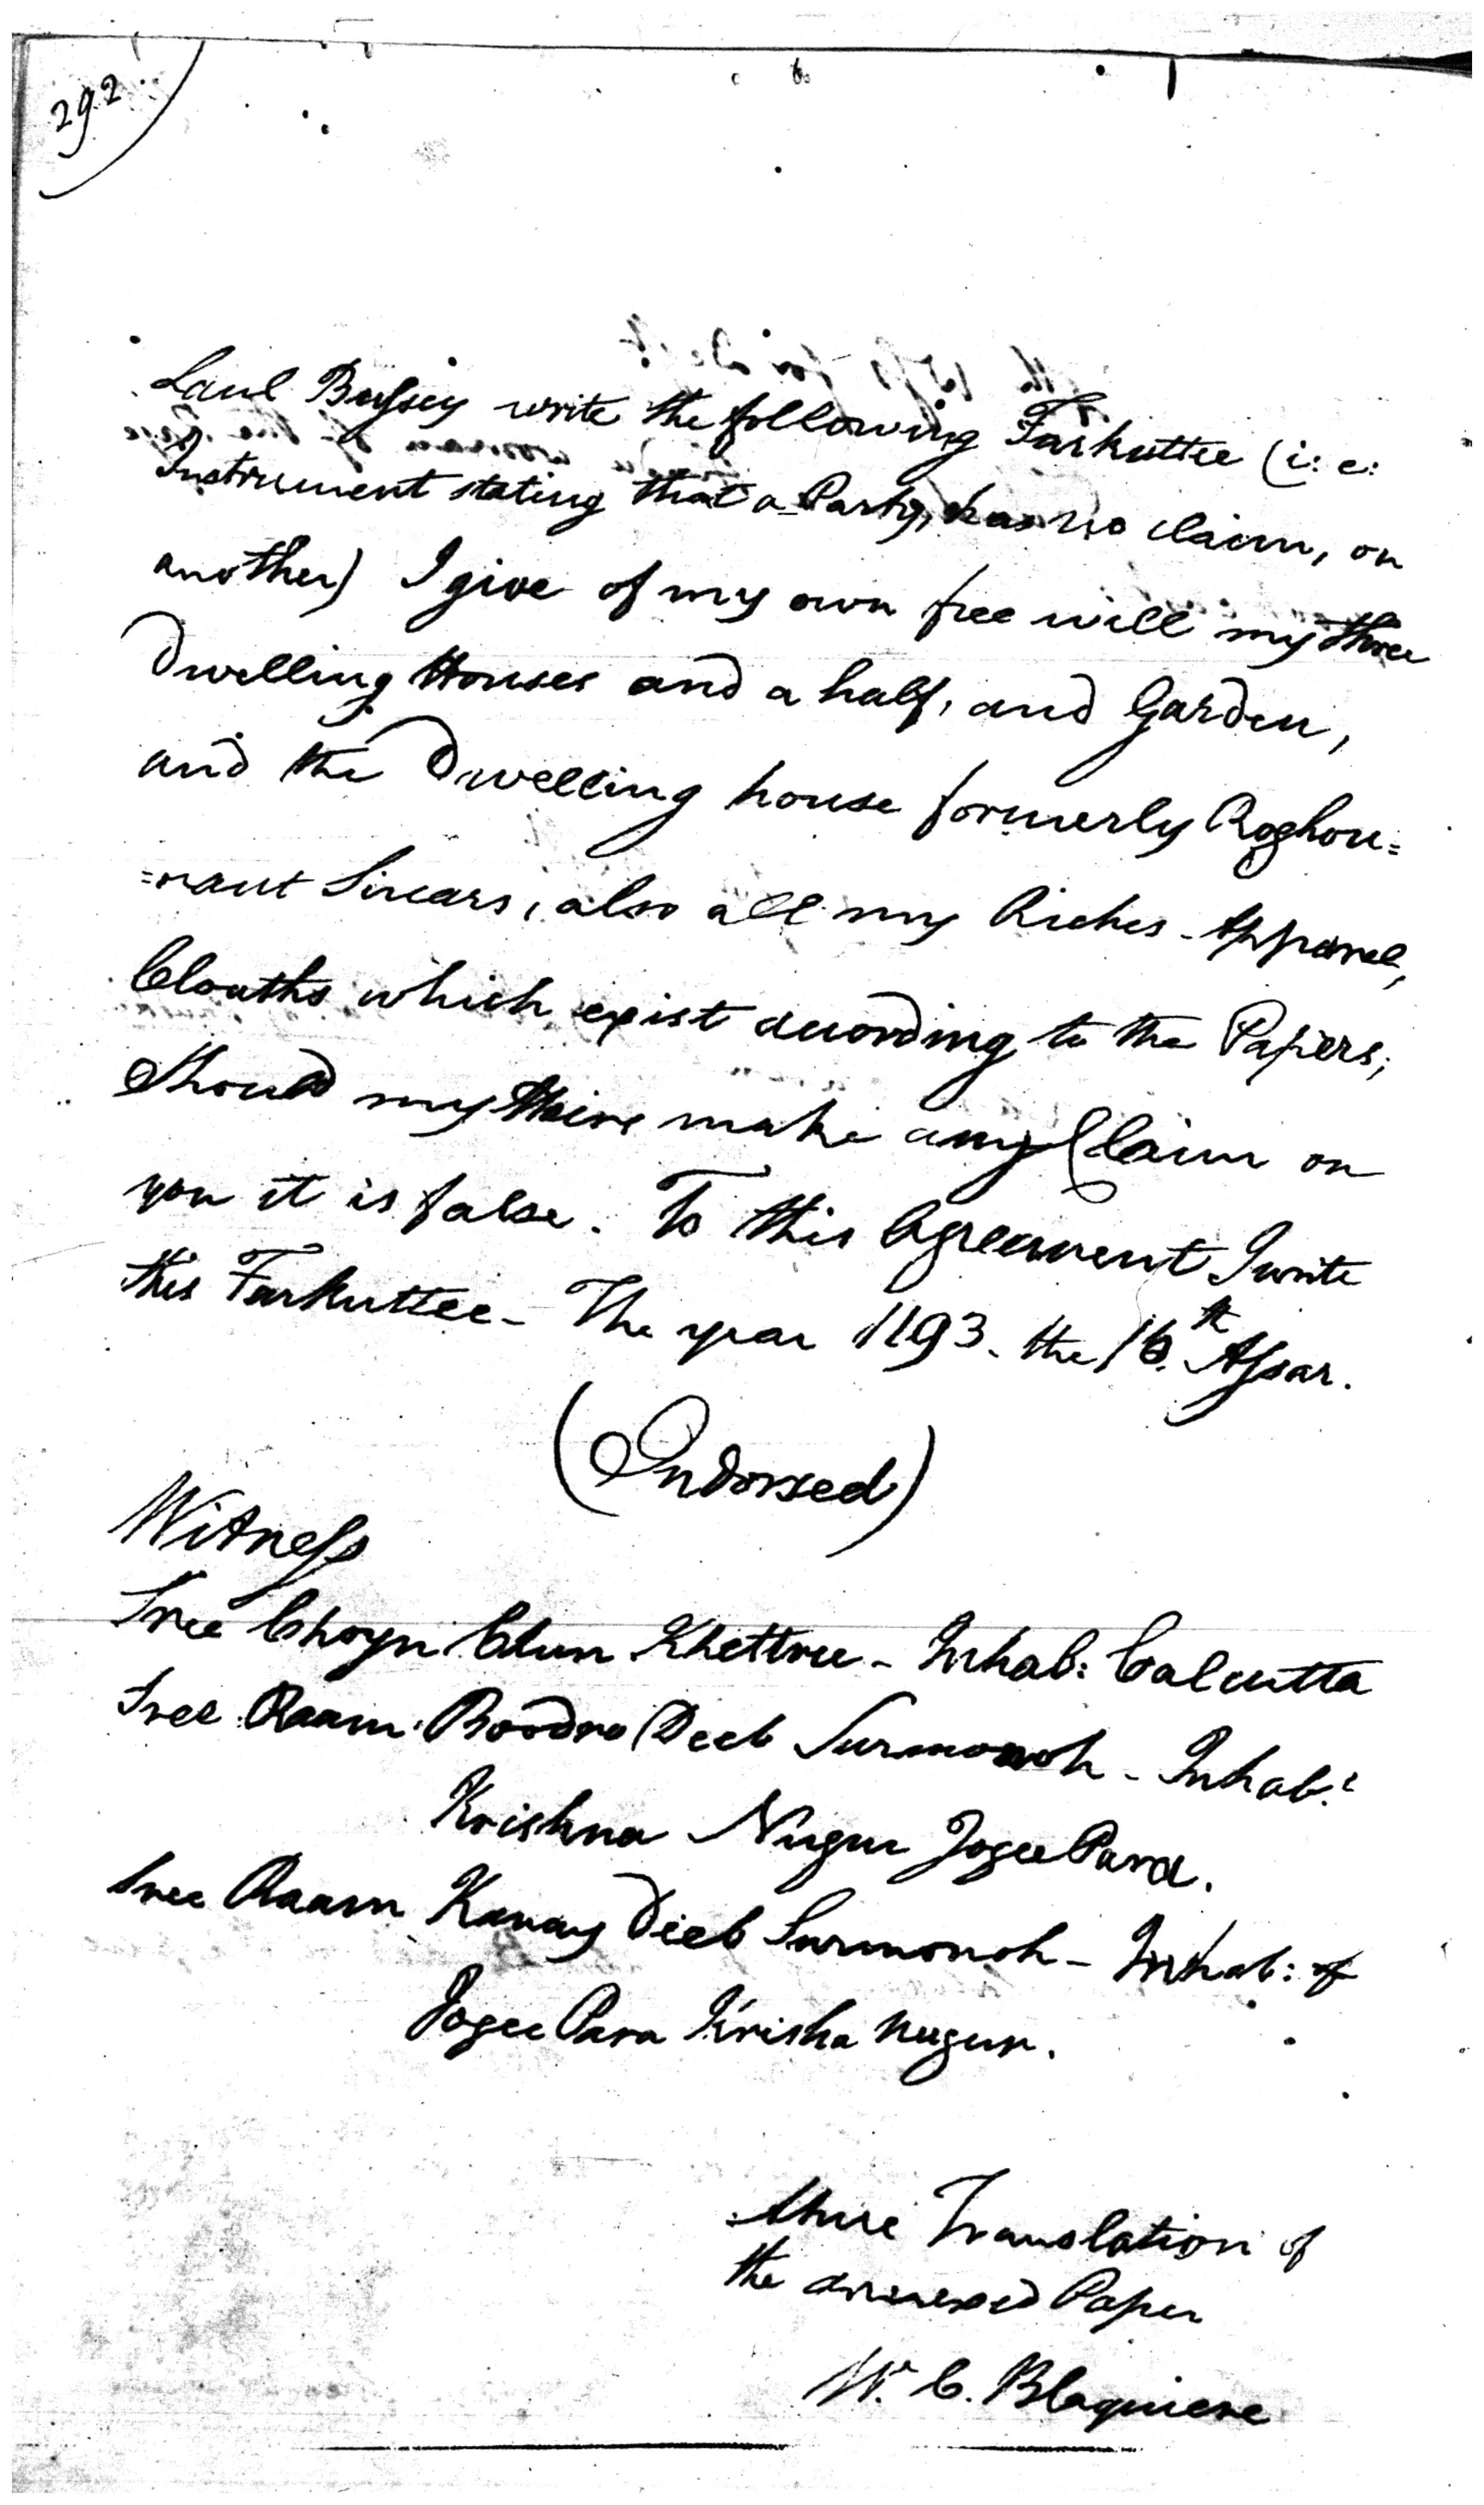 292
Laul Bussey write the following Farkuttee (i: e:
Instrument stating that a Party, has no claim, on
another) I give of my own free will my three
Dwelling Houses and a half, and Garden,
and the Dwelling house formerly Roghou=
=naut Sircars, also all my Riches - Apparel,
Cloaths which exist according to the Papers;
Should my Heirs make any Claim on
you it is false. To this Agreement I write
this Farkuttee - The year 1193. the 16.th Assar.
(Endorsed)
Witness
Sree Choyn Chun Khettree - Inhab: Calcutta
Sree Raam Roodro Deeb Surmonoh - Inhab:t
Krishna Nugur Jogee Para.
Sree Raam Kanay Deeb Surmonoh - Inhab: of
Jogee Para Krisha nugur.
A true Translation of
the annexed Paper
W. C. Blaquiere